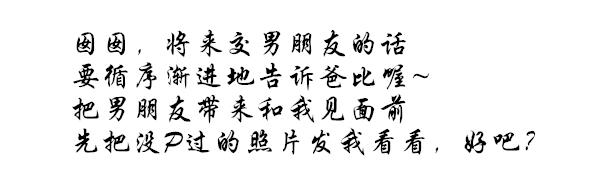 囡囡，将来交男朋友的话
要循序渐进地告诉爸比喔~
把男朋友带来和我见面前
先把没P过的照片发我看看，好吧？